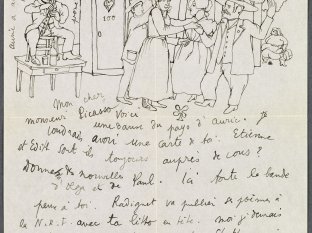 100
Mon cher
monsieur Picasso Voici
une danse du pays d'Auric. Je
voudrais avoir une carte de toi. Etienne
et Edith sont-ils toujours auprès de vous?
Donnez nouvelles
d'Olga et de Paul. Ici toute la bande
pense à toi. Radiguet va publier ses poèmes à
la N.R.F. avec ta litho en tête. moi je